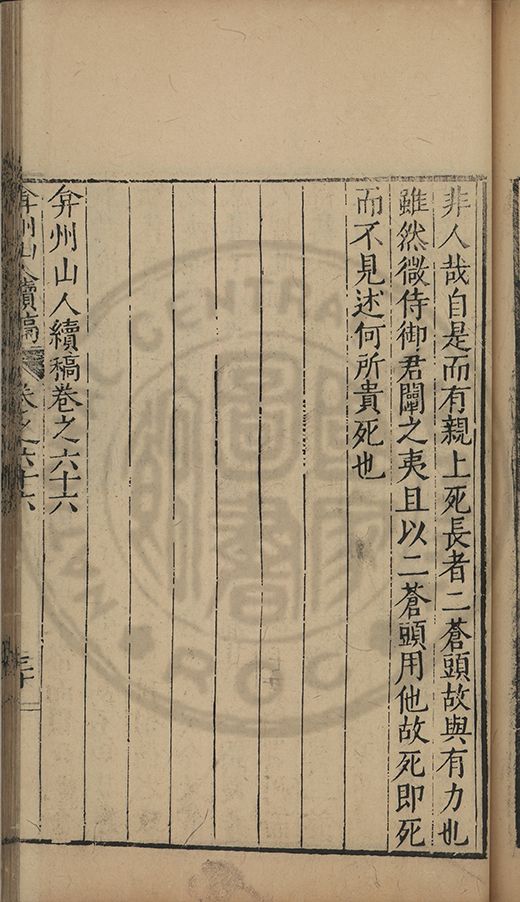 非人哉自是而有親上死長者二蒼頭故與有力也
雖然微侍御君闡之夷且以二蒼頭用他故死即死
而不見述何所貴死也
弇州山人續稿卷之六十六
弇州山人續稿 卷之六十六